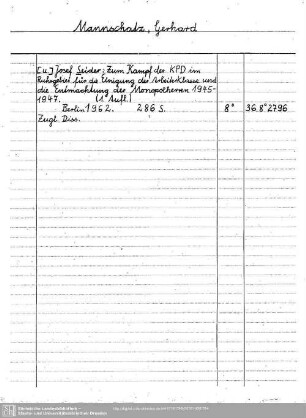 Mannschatz, Gerhard
[u.] Josef Seider: Zum Kampf der KPD im
Ruhrgebiet für die Einigung der Arbeiterklasse und
die Entmachtung der Monopolherren 1945-
1947. (1. Aufl.)
Berlin 1962. 286 S. 8° 36.8°2796
Zugl. Diss.
Sächsische Landesbibliothek –
Staats- und Universitätsbibliothek Dresden